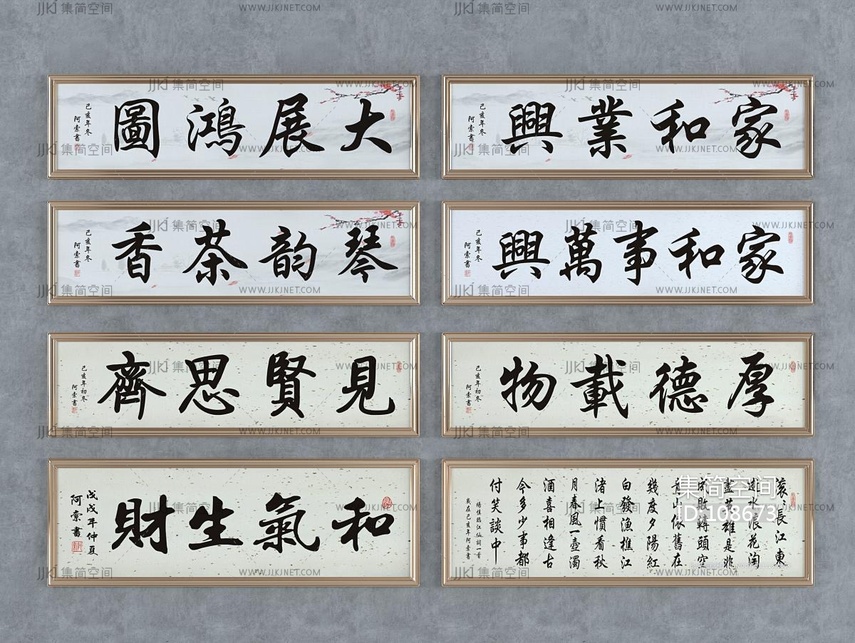 JJKJ 集简空间
WWW.JJKJNET.COM
大展鴻圖
己亥年冬
阿索書
家和業興
己亥年冬
阿索書
琴韵茶香
己亥年冬
阿索書
家和萬事興
己亥年冬
阿索書
見賢思齊
己亥年初冬
阿索書
厚德載物
己亥年冬
阿索書
和氣生財
戊戌年仲夏
阿索書
滾長江東
逝水浪花淘
盡英雄是非
成敗轉頭空
青山依舊在
幾度夕陽紅
白發漁樵江
渚上慣看秋
月春風一壺濁
酒喜相逢古
今多少事都
付笑談中
楊慎臨江仙詞一首
歲在己亥年阿索書
集简空间
ID:108673